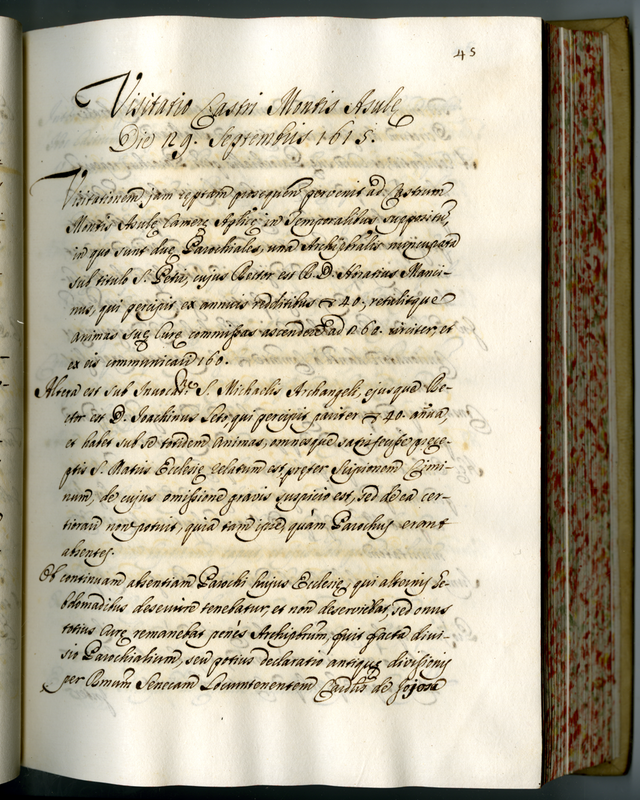 45
Visitatio Castri Montis Asule
Die 29. Septembris 1615.
Visitationem jam ceptam prosequens pervenit ad Castrum
Montis Asule Camere Aplice in Temporalibus suppositu,
in quo sunt due Parochiales, una Archipsalis nuncupata
sub titulo S. Petri, cujus Rector est R. D. Horatius Manci-
nus, qui percipit ex annuis redditibus 40, retulitque
animas sue Cure commissas ascendere ad 260. circiter, et
ex eis communicari 160.
Altera est sub Invocne S. Michaelis Archangeli, ejusque Re-
ctor est D. Joachinus qui percipit pariter 40. annua,
et habet sub se totidem animas, omnesque satisfecisse prece-
ptis S. Matris Ecclesie relatum est, preter Scipionem Cimi-
num, de cujus omissione gravis suspicio est, sed de ea cer-
tiorari non potuit, quia tam ipse, quàm Parochus erant
absentes.
Ob continuam absentiam Parochi hujus Ecclesie, qui alternis he-
bdomadibus deservire tenebatur, et non deservibat, sed onus
totius Cure remanebat penès Archipbrum, fuit facta divi-
sio Parochialium, seu potius declaratio antique divisionis
per Rmum Senecam Locumtenentem Cardlis de Joyosa